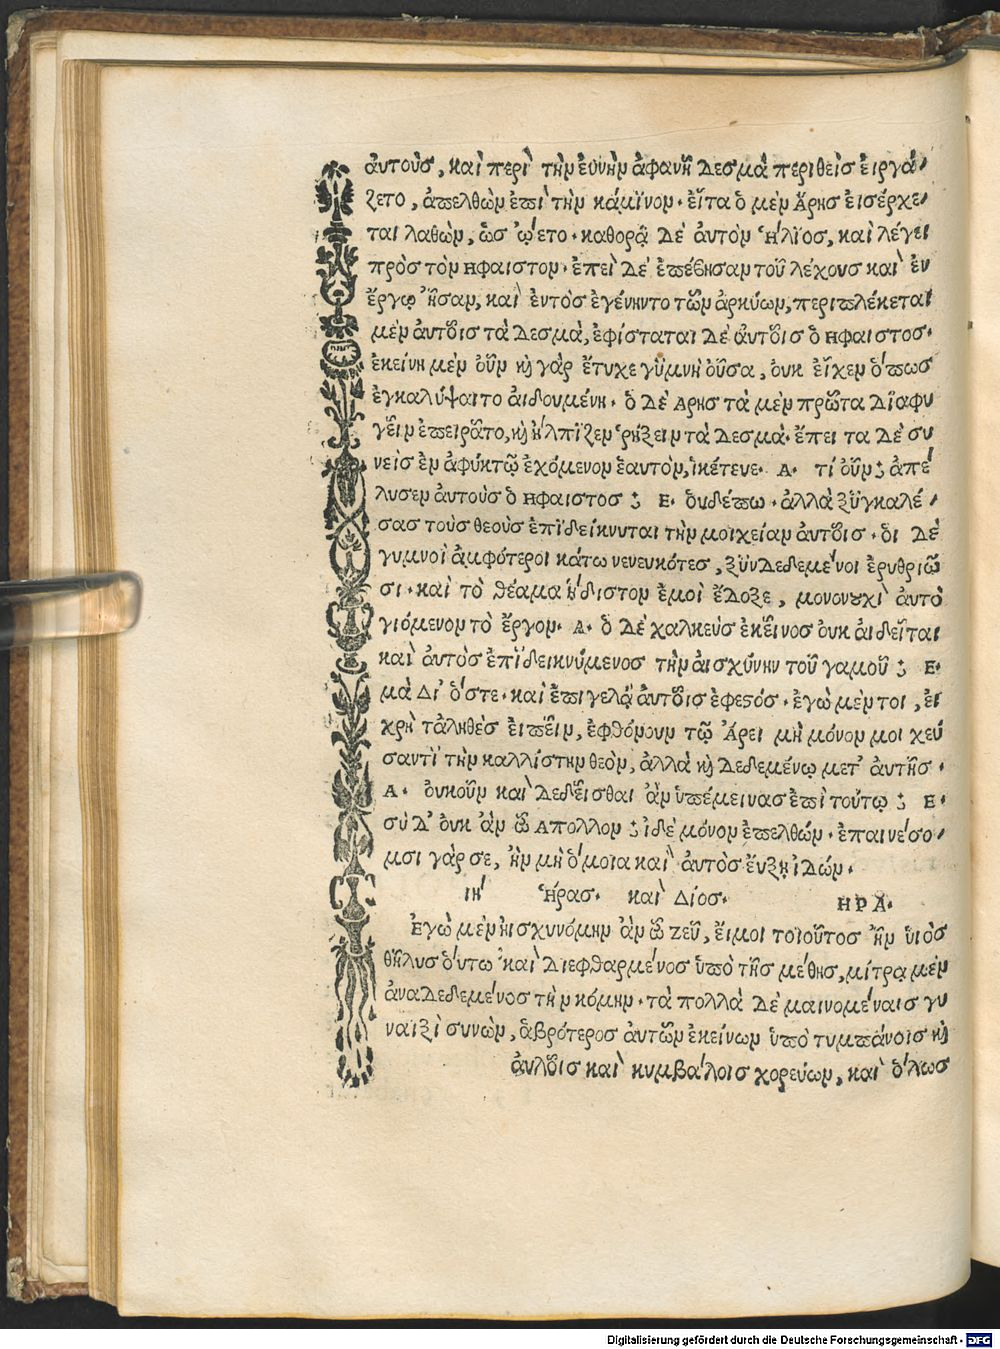 ἀυτοὺς, καὶ περὶ τὴν ἐυνὴν ἀφανῆ δεσμὰ περιθεὶς ἐιργά/
ζετο, ἀπελθὼν ἐπὶ τὴν κάμϊνον. ἐῖτα ὁ μὲν Ἄρης ἐισέρχε/
ται λαθὼν, ὡς ᾤετο. καθορᾷ δὲ ἀυτὸν ἥλϊος, καὶ λέγει
πρὸς τὸν ΗΦαιστον. ἐπεὶ δὲ ἐπέβησαν τοῦ λέχους καὶ ἐν
ἔργῳ ἦσαν, καὶ ἐντὸς ἐγένηντο τῶν ἀρκύων, περιπλέκεται
μὲν ἀυτοῖς τὰ δεσμὰ, ἐφίσταται δὲ ἀυτοῖς ὁ ΗΦαιστος.
ἐκείνη μὲν οὖν κỳ γὰρ ἔτυχε γϋμνὴ οὖσα, ουκ ἐῖχεν ὅπως
ἐγκαλύψαιτο αιδουμένη. ὁ δὲ Αρης τὰ μὲν πρῶτα δϊαφυ
γεῖν ἐπειρᾶτο, κỳ ἤλπϊζεν ῥήξειν τὰ δεσμὰ. ἔπει τα δὲ συ
νεὶς ἐν ἀφύκτῳ ἐχόμενον ἑαυτὸν, ἱκέτευε. Α. τί οὖν; ἀπέ
λυσεν ἀυτοὺς ὁ ΗΦαιστος; Ε. ὀυδέπω. ἀλλὰ ξϋγκαλέ/
σας τοὺς θεοὺς ἐπϊδείκνυται τὴν μοιχείαν ἀυτοῖς. ὁι δὲ
γυμνοὶ ἀμφότεροι κάτω νενευκότες, ξϋνδεδεμένοι ἐρυθριῶ
σι. καὶ τὸ θέαμα ἥδιστον ἐμοὶ ἔδοξε, μονονουχὶ ἀυτὸ
γιόμενον τὸ ἔργον. Α. ὁ δὲ χαλκεὺς ἐκεῖνος ουκ ἀιδεῖται
καὶ ἀυτὸς ἐπϊδεικνύμενος τὴν ἀισχύνην τοῦ γαμοῦ; Ε.
μὰ Δι' ὅστε. καὶ ἐπιγελᾷ ἀυτοῖς ἐφεστός. ἐγὼ μὲν τοι, ἐι
χρὴ τἀληθὲς ἐιπεῖν, ἐφθόνουν τῷ Ἄρει μὴ μόνον μοι χεύ
σαντϊ τὴν καλλίστην θεὸν, ἀλλὰ κỳ δεδεμένῳ μετ' ἀυτῆς.
Α. ὀυκοῦν καὶ δεδεῖσθαι ἂν ὑπέμεινας ἐπὶ τούτῳ; Ε.
σὺ δ' ὀυκ ἂν ὦ Απολλον; ἰδὲ μόνον ἐπελθών. ἐπαινέσο.
μαι γάρ σε, ἢν μὴ ὅμοια καὶ ἀυτὸς ἔυξῃ ἰδών.
ιη' Ἥρας. καὶ Δίος. ΗΡΑ.
Ἐγὼ μὲν ἠισχυνόμην ἂν ὦ Ζεῦ, ἔιμοι τοϊοῦτος ἦν ὑιὸς
θῆλυς ὅυτω καὶ διεφθαρμένος ὑπὸ τῆς μέθης, μίτρᾳ μὲν
ἀναδεδεμένος τὴν κόμην. τὰ πολλὰ δὲ μαινομέναις γυ
ναιξὶ συνὼν, ἁβρότερος ἀυτῶν ἐκείνων ὑπὸ τυμπάνοις κỳ
ἀυλοῖς καὶ κυμβάλοις χορεύων, καὶ ὅλως
Digitalisierung gefördert durch die Deutsche Forschungsgemeinschaft - DFG